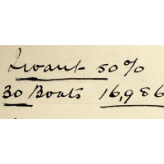 Swant 50%
30 Boats 16,986